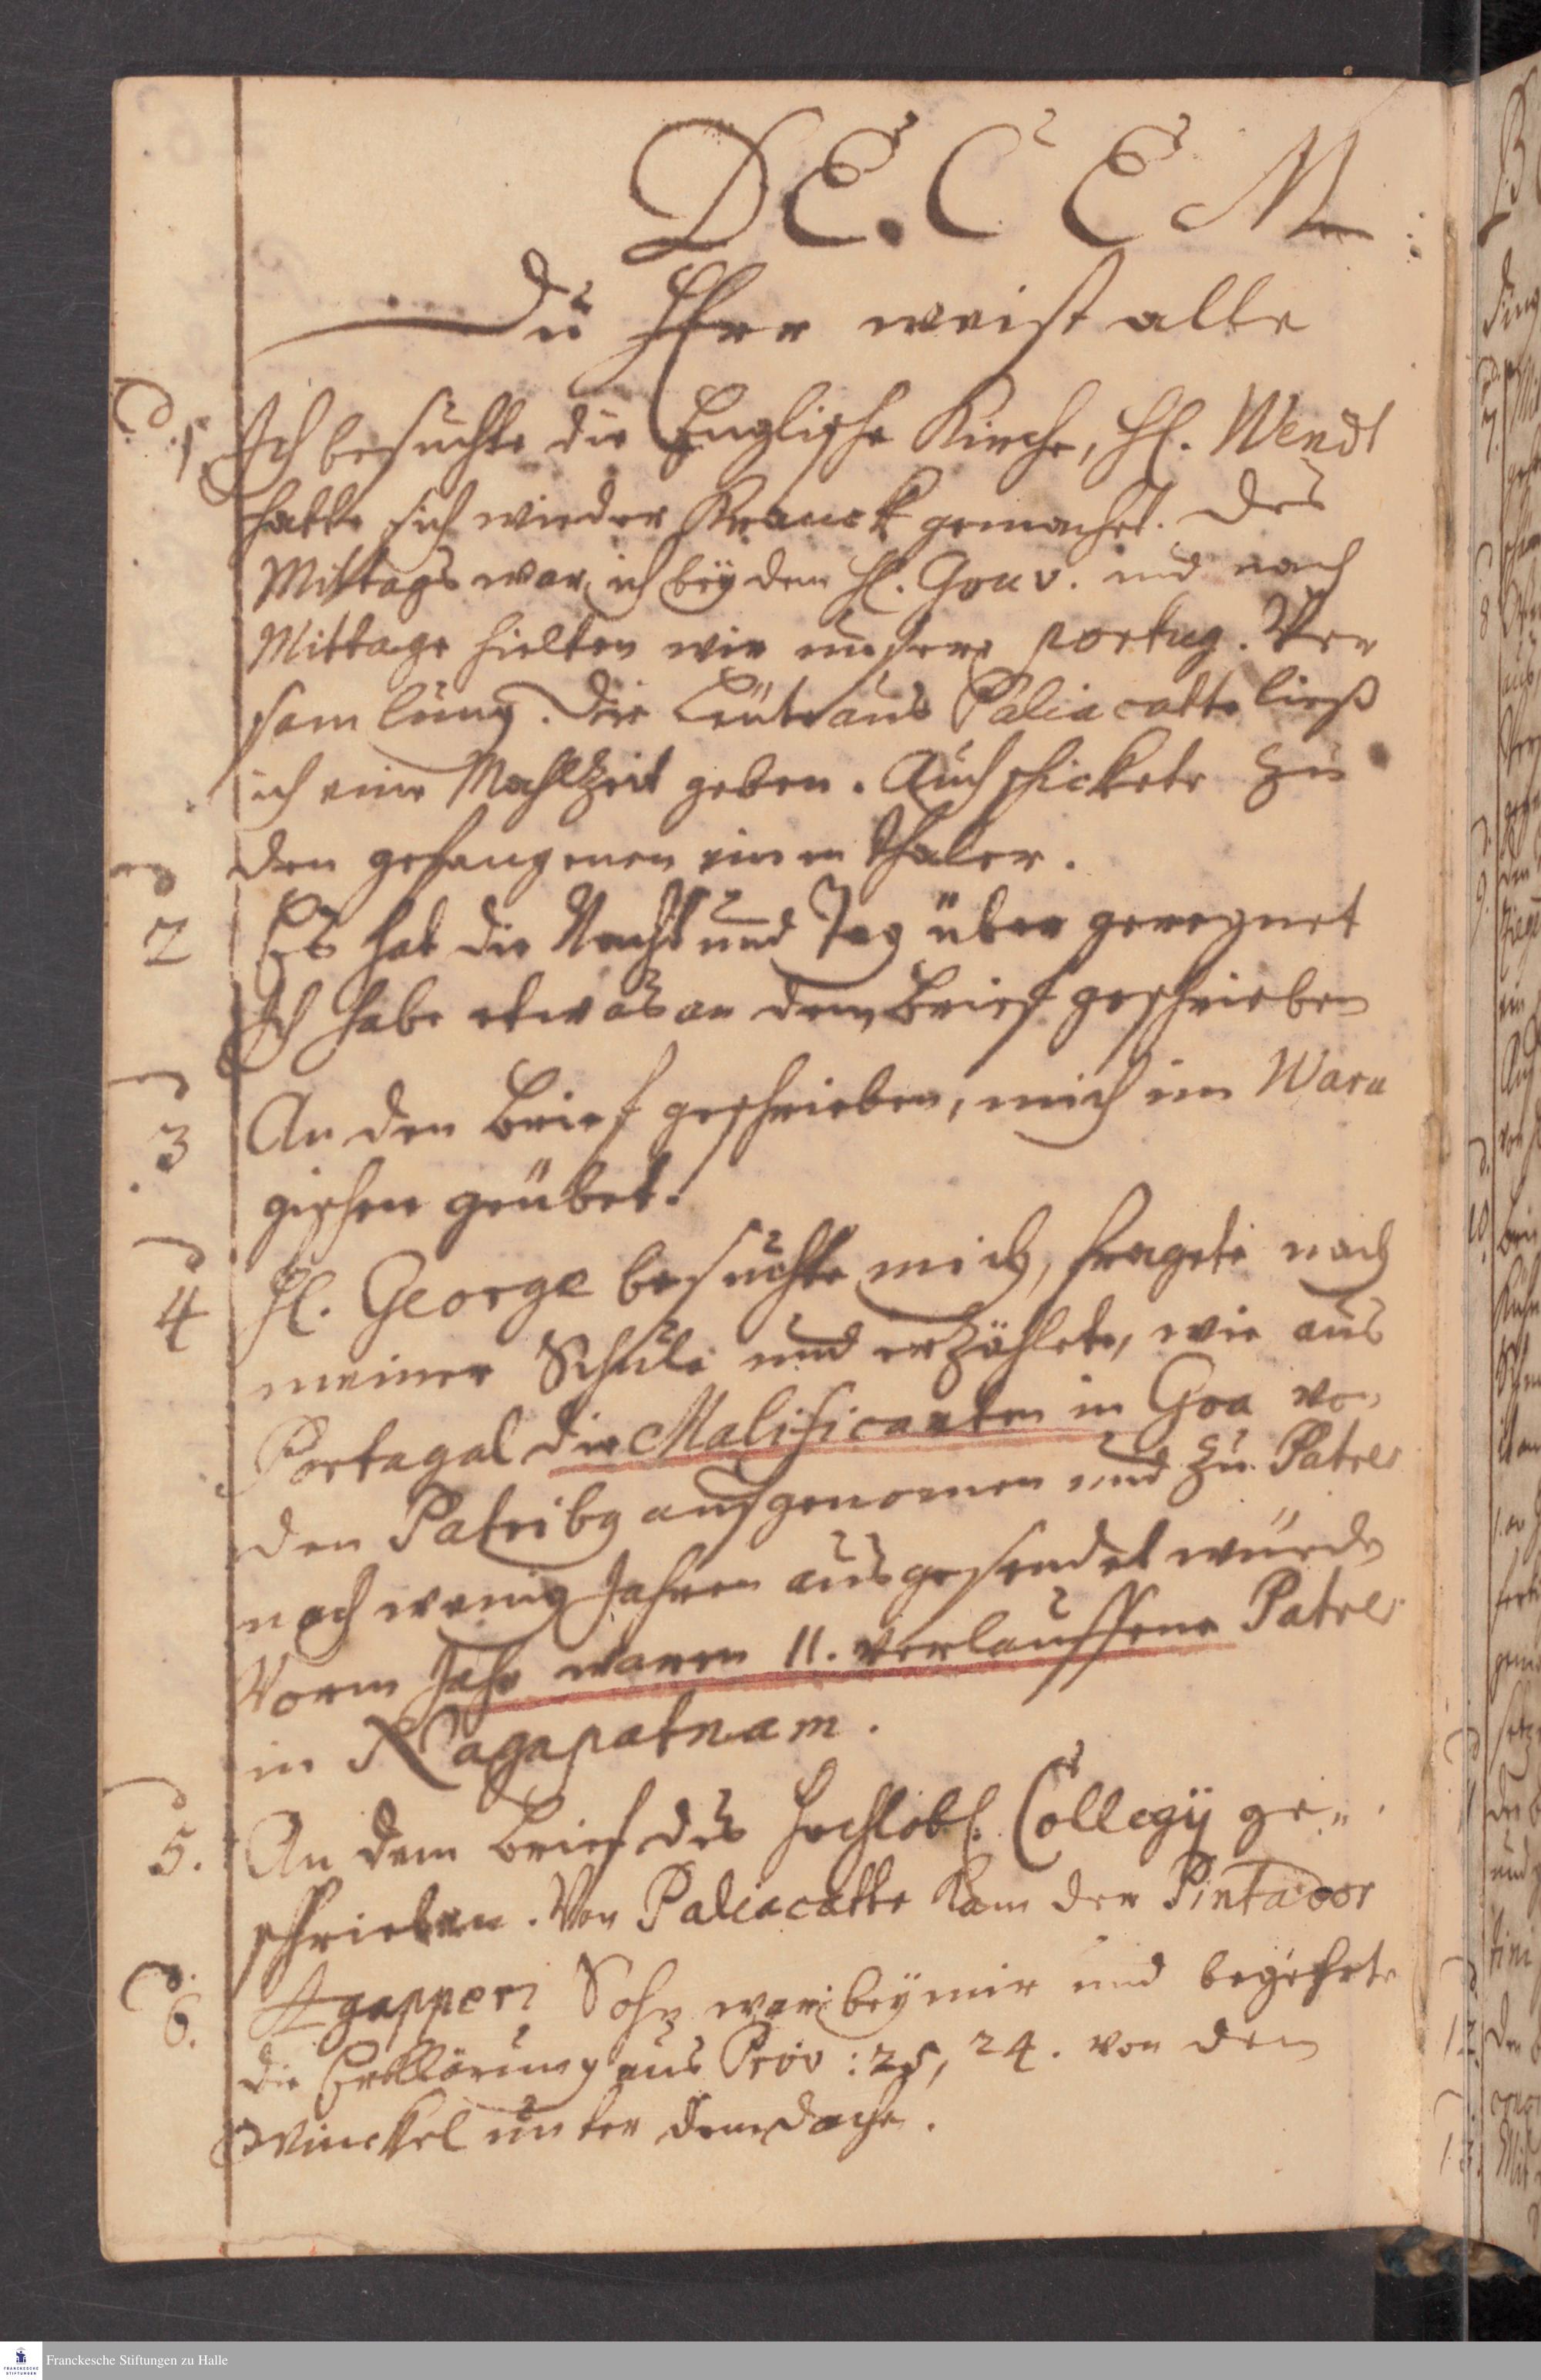 DE. C E M
Du HErr weist alle
d. 1. Ich besuchte die Englische Kirche, H. Wendt
hatte sich wieder Kranck gemachet. Des
Mittags war ich bey dem H. Gouv. und nach
Mittage hielten wir unsere portug. Ver
samlung. Die Leute aus Paliacatte ließ
ich eine Mahlzeit geben. Auch schickete zu
den gefangenen einen Thaler.
d 2 Es hat die Nacht und Tag über geregnet
Ich habe etwas an dem Brief geschrieben
d 3 An den Brief geschrieben, mich im Waru
gischen geübet.
d 4 H. George besuchte mich, fragete nach
meiner Schule und erzählete, wie aus
Portagal die Malificanten in Goa vo
den Patribq aufgenomen und zu Patres
nach wenig Jahren ausgesendet würde
Vorm Jahr waren 11. verlauffene Patres
in Nagapatnam.
d 5. An dem Brief des Hochlöbl. Collegij ge-
schrieben. Von Paliacatte kam der Pintador
d. 6. Agapperi Sohn war bey mir und begehrte
die Erklärung aus Prov: 25, 24. von dem
Winckel unter dem Dache.
Franckesche Stiftungen zu Halle